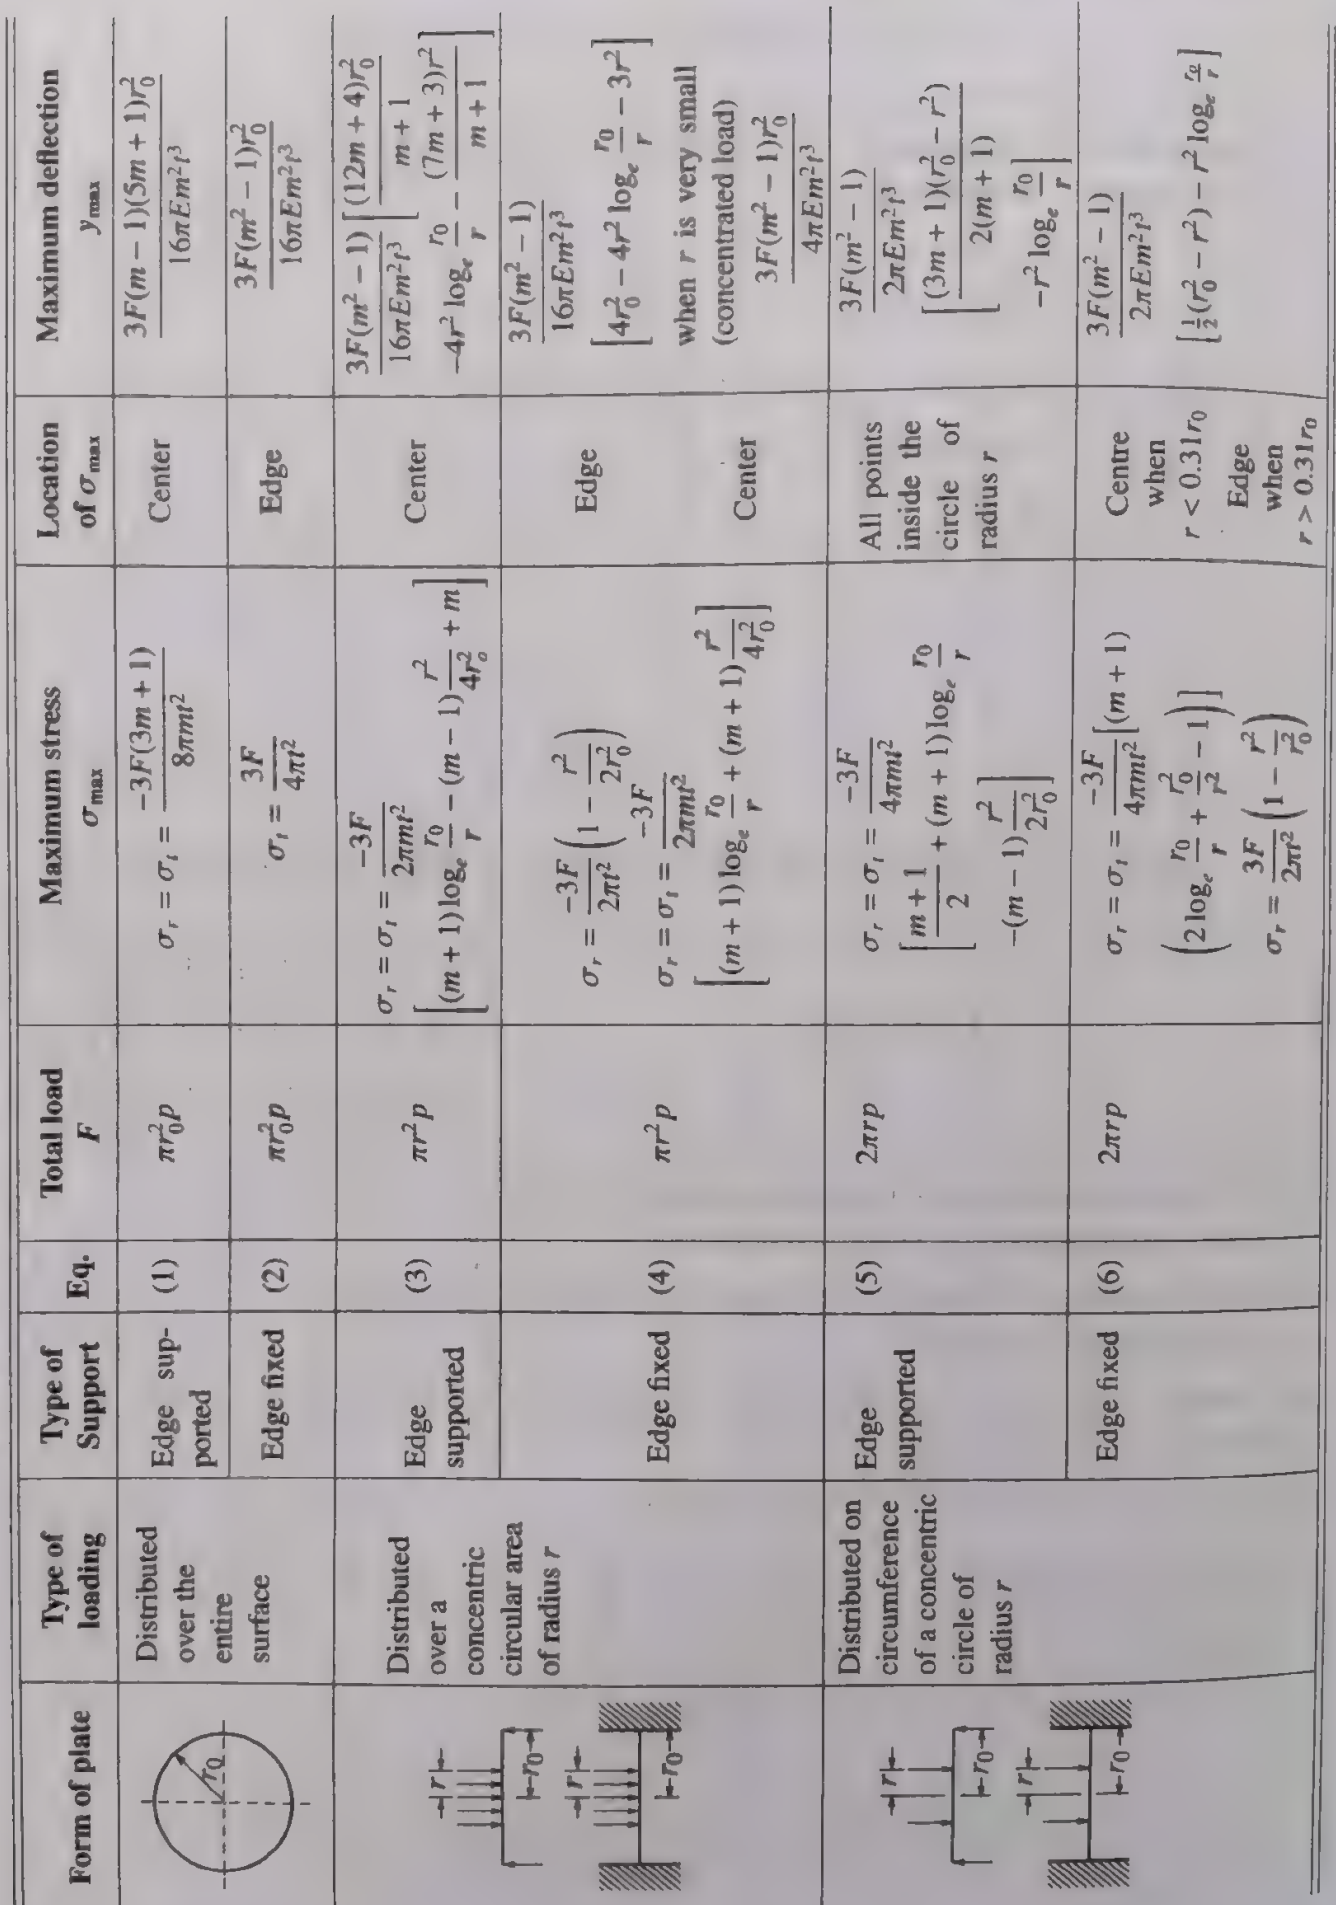 Form of plate
Type of
loading
Type of
Support
Eq.
Total load
F
Maximum stress
σ_max
Location
of σ_max
Maximum deflection
y_max
r_0
Distributed
over the
entire
surface
Edge sup-
ported
(1)
πr_0^2 p
σ_r = σ_t = -3F(3m + 1) / 8πmt^2
Center
3F(m − 1)(5m + 1)r_0^2 / 16πEm^2t^3
Edge fixed
(2)
πr_0^2 p
σ_t = 3F / 4πt^2
Edge
3F(m^2 − 1)r_0^2 / 16πEm^2t^3
r
r_0
r
r_0
Distributed
over a
concentric
circular area
of radius r
Edge
supported
(3)
πr^2 p
σ_r = σ_t = -3F / 2πmt^2
[(m + 1) log_e r_0/r − (m − 1) r^2/4r_o^2 + m]
Center
3F(m^2 − 1) / 16πEm^2t^3 [(12m + 4)r_0^2 / m + 1
−4r^2 log_e r_0/r − (7m + 3)r^2 / m + 1]
Edge fixed
(4)
πr^2 p
σ_r = -3F / 2πt^2 (1 − r^2/2r_0^2)
σ_r = σ_t = -3F / 2πmt^2
[(m + 1) log_e r_0/r + (m + 1) r^2/4r_0^2]
Edge
Center
3F(m^2 − 1) / 16πEm^2t^3
[4r_0^2 − 4r^2 log_e r_0/r − 3r^2]
when r is very small
(concentrated load)
3F(m^2 − 1)r_0^2 / 4πEm^2t^3
r
r_0
r
r_0
Distributed on
circumference
of a concentric
circle of
radius r
Edge
supported
(5)
2πrp
σ_r = σ_t = -3F / 4πmt^2
[m + 1 / 2 + (m + 1) log_e r_0/r
−(m − 1) r^2/2r_0^2]
All points
inside the
circle of
radius r
3F(m^2 − 1) / 2πEm^2t^3
[(3m + 1)(r_0^2 − r^2) / 2(m + 1)
−r^2 log_e r_0/r]
Edge fixed
(6)
2πrp
σ_r = σ_t = -3F / 4πmt^2 [(m + 1)
(2 log_e r_0/r + r_0^2/r^2 − 1)]
σ_r = 3F / 2πt^2 (1 − r^2/r_0^2)
Centre
when
r < 0.31r_0
Edge
when
r > 0.31r_0
3F(m^2 − 1) / 2πEm^2t^3
[1/2(r_0^2 − r^2) − r^2 log_e r_0/r]